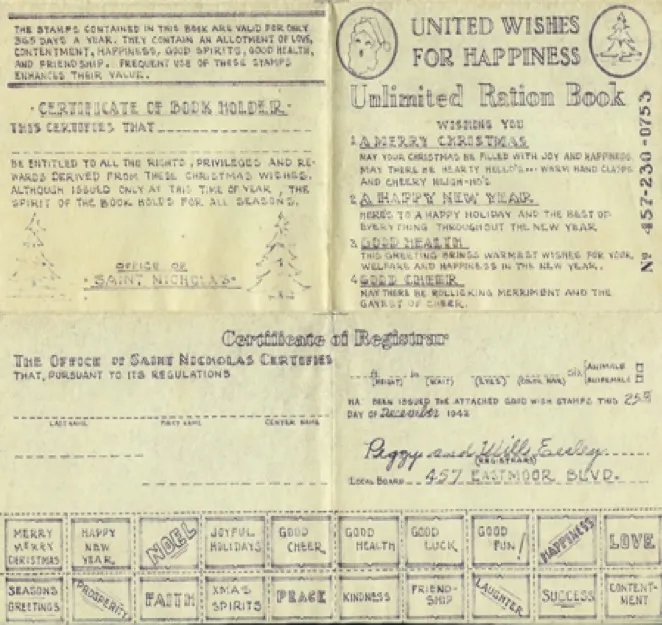 THE STAMPS CONTAINED IN THIS BOOK ARE VALID FOR ONLY
365 DAYS A YEAR. THEY CONTAIN AN ALLOTMENT OF LOVE,
CONTENTMENT, HAPPINESS, GOOD SPIRITS, GOOD HEALTH,
AND FRIENDSHIP. FREQUENT USE OF THESE STAMPS
ENHANCES THEIR VALUE.
CERTIFICATE OF BOOK HOLDER
THIS CERTIFIES THAT
BE ENTITLED TO ALL THE RIGHTS, PRIVILEGES AND RE-
WARDS DERIVED FROM THESE CHRISTMAS WISHES.
ALTHOUGH ISSUED ONLY AT THIS TIME OF YEAR, THE
SPIRIT OF THE BOOK HOLDS FOR ALL SEASONS.
OFFICE OF
SAINT NICHOLAS
UNITED WISHES
FOR HAPPINESS
Unlimited Ration Book
WISHING YOU
1. A MERRY CHRISTMAS
MAY YOUR CHRISTMAS BE FILLED WITH JOY AND HAPPINESS.
MAY THERE BE HEARTY HELLO'S... WARM HAND CLASPS
AND CHEERY HEIGH-HO'S.
2. A HAPPY NEW YEAR
HERE'S TO A HAPPY HOLIDAY AND THE BEST OF
EVERYTHING THROUGHOUT THE NEW YEAR
3. GOOD HEALTH
THIS GREETING BRINGS WARMEST WISHES FOR YOUR
WELFARE AND HAPPINESS IN THE NEW YEAR.
4. GOOD CHEER
MAY THERE BE ROLLICKING MERRIMENT AND THE
GAYEST OF CHEER.
No 457-230-0753
Certificate of Registrar
THE OFFICE OF SAINT NICHOLAS CERTIFIES
THAT, PURSUANT TO ITS REGULATIONS
LAST NAME FIRST NAME CENTER NAME
(HEIGHT) (EYES) (COLOR HAIR) SEX
HA BEEN ISSUED THE ATTACHED GOOD WISH STAMPS THIS 25th
DAY OF December 1942
Peggy and Wills
(REGISTRARS)
LOCAL BOARD 457 EASTMOOR BLVD.
MERRY MERRY CHRISTMAS
HAPPY NEW YEAR
NOEL
JOYFUL HOLIDAYS
GOOD CHEER
GOOD HEALTH
GOOD LUCK
GOOD FUN!
HAPPINESS
LOVE
SEASONS GREETINGS
PROSPERITY
FAITH
XMAS SPIRITS
PEACE
KINDNESS
FRIEND-SHIP
LAUGHTER
SUCCESS
CONTENT-MENT